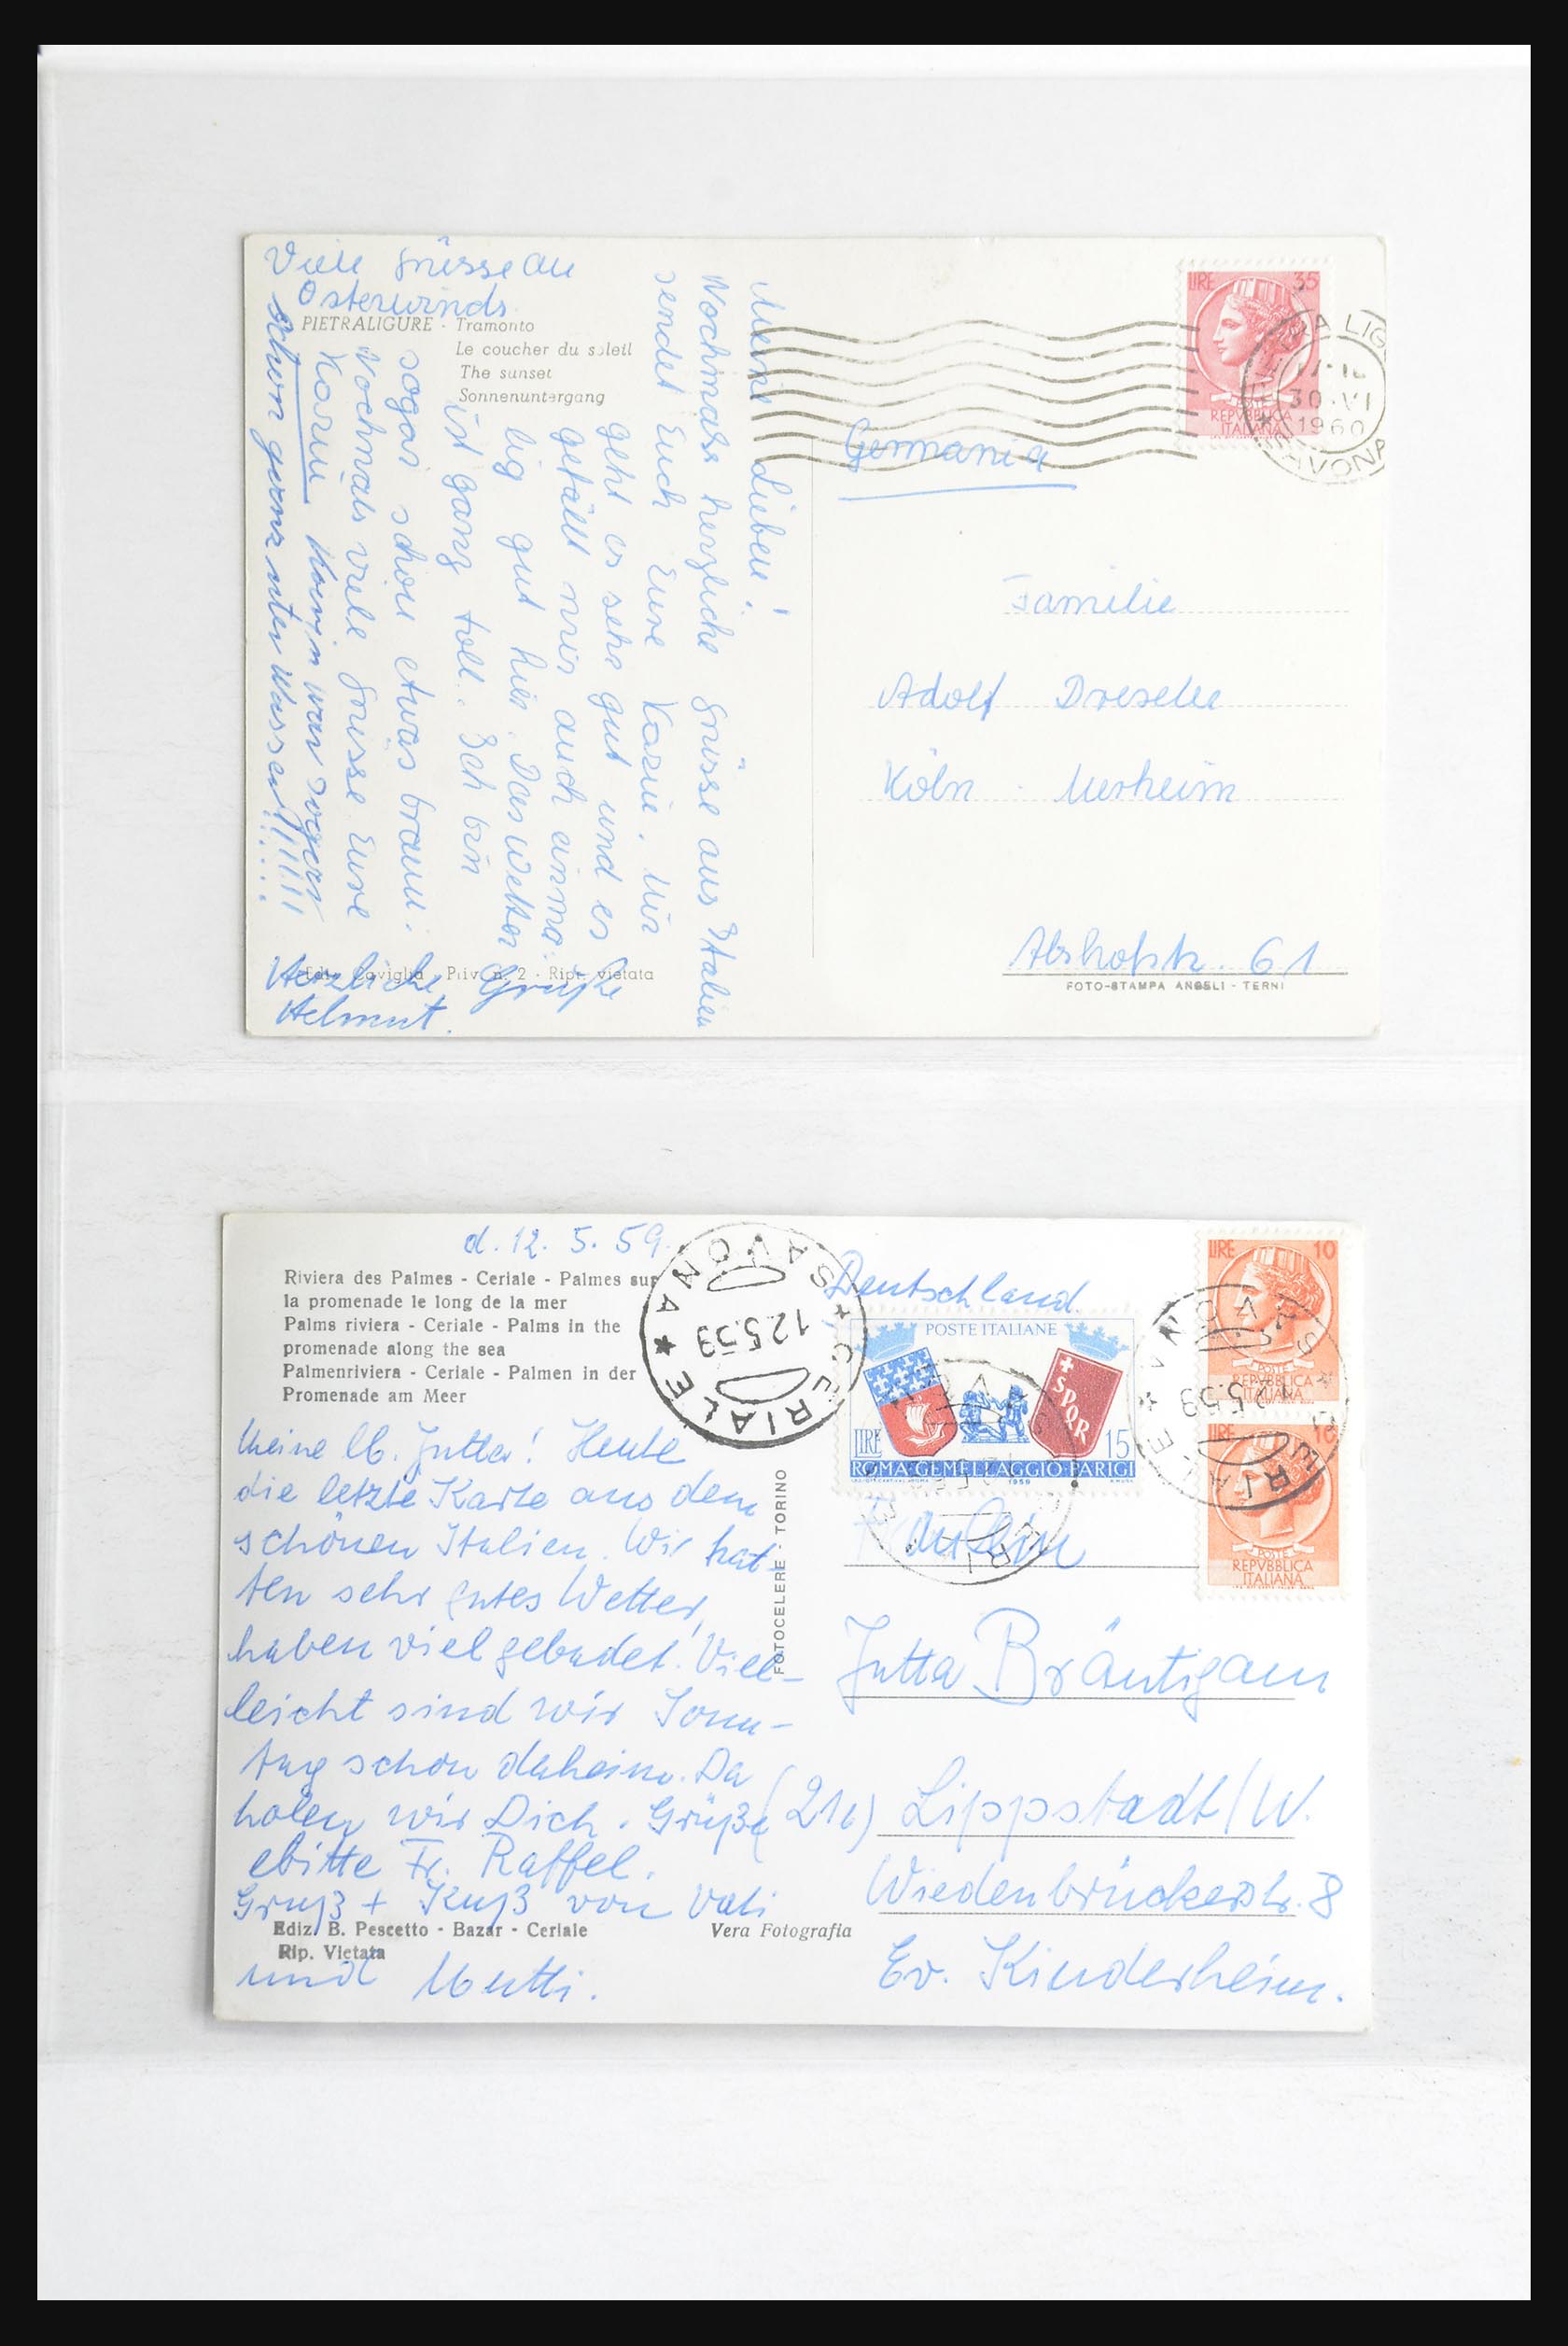 Viele Grüsse an
Osterwinds.
PIETRALIGURE - Tramonto
Le coucher du soleil
The sunset
Sonnenuntergang
Meine Lieben!
Nochmals herzliche Grüsse aus Italien
sendet Euch Eure Karin. Mir
geht es sehr gut und es
gefällt mir auch einma.
lig gut hier. Das Wetter
ist ganz toll. Ich bin
sogar schon etwas braun.
Nochmals viele Grüsse Eure
Karin. Karin war sogar
schon ganz unter Wasser!!!!!!
Herzliche Grüße
Helmut.
Ediz. Caviglia - Priv. n. 2 - Ripr. vietata
LIRE 35
POSTE
REPVBBLICA
ITALIANA
30.VI
1960
SAVONA
Germania
Familie
Adolf
Köln - Merheim
61
FOTO-STAMPA ANGELI - TERNI
d. 12. 5. 59.
Riviera des Palmes - Ceriale - Palmes sur
la promenade le long de la mer
Palms riviera - Ceriale - Palms in the
promenade along the sea
Palmenriviera - Ceriale - Palmen in der
Promenade am Meer
Meine lb. Jutta! Heute
die letzte Karte aus dem
schönen Italien. Wir hat-
ten sehr gutes Wetter,
haben viel gebadet. Viel-
leicht sind wir Sonn-
tag schon daheim. Da
holen wir Dich. Grüße
bitte Fr. Raffel.
Gruß + Kuß von Vati
und Mutti.
Ediz. B. Pescetto - Bazar - Ceriale
Rip. Vietata
Vera Fotografia
FOTOCELERE - TORINO
CERIALE * SAVONA *
12.5.59
Deutschland
POSTE ITALIANE
SPQR
LIRE 15
ROMA·GEMELLAGGIO·PARIGI
1959
LIRE 10
POSTE
REPVBBLICA
ITALIANA
LIRE 10
POSTE
REPVBBLICA
ITALIANA
CERIALE * SAVONA *
12.5.59
Fräulein
Jutta Bräutigam
(21b) Lippstadt/W.
Wiedenbrückerstr. 8
Ev. Kinderheim.